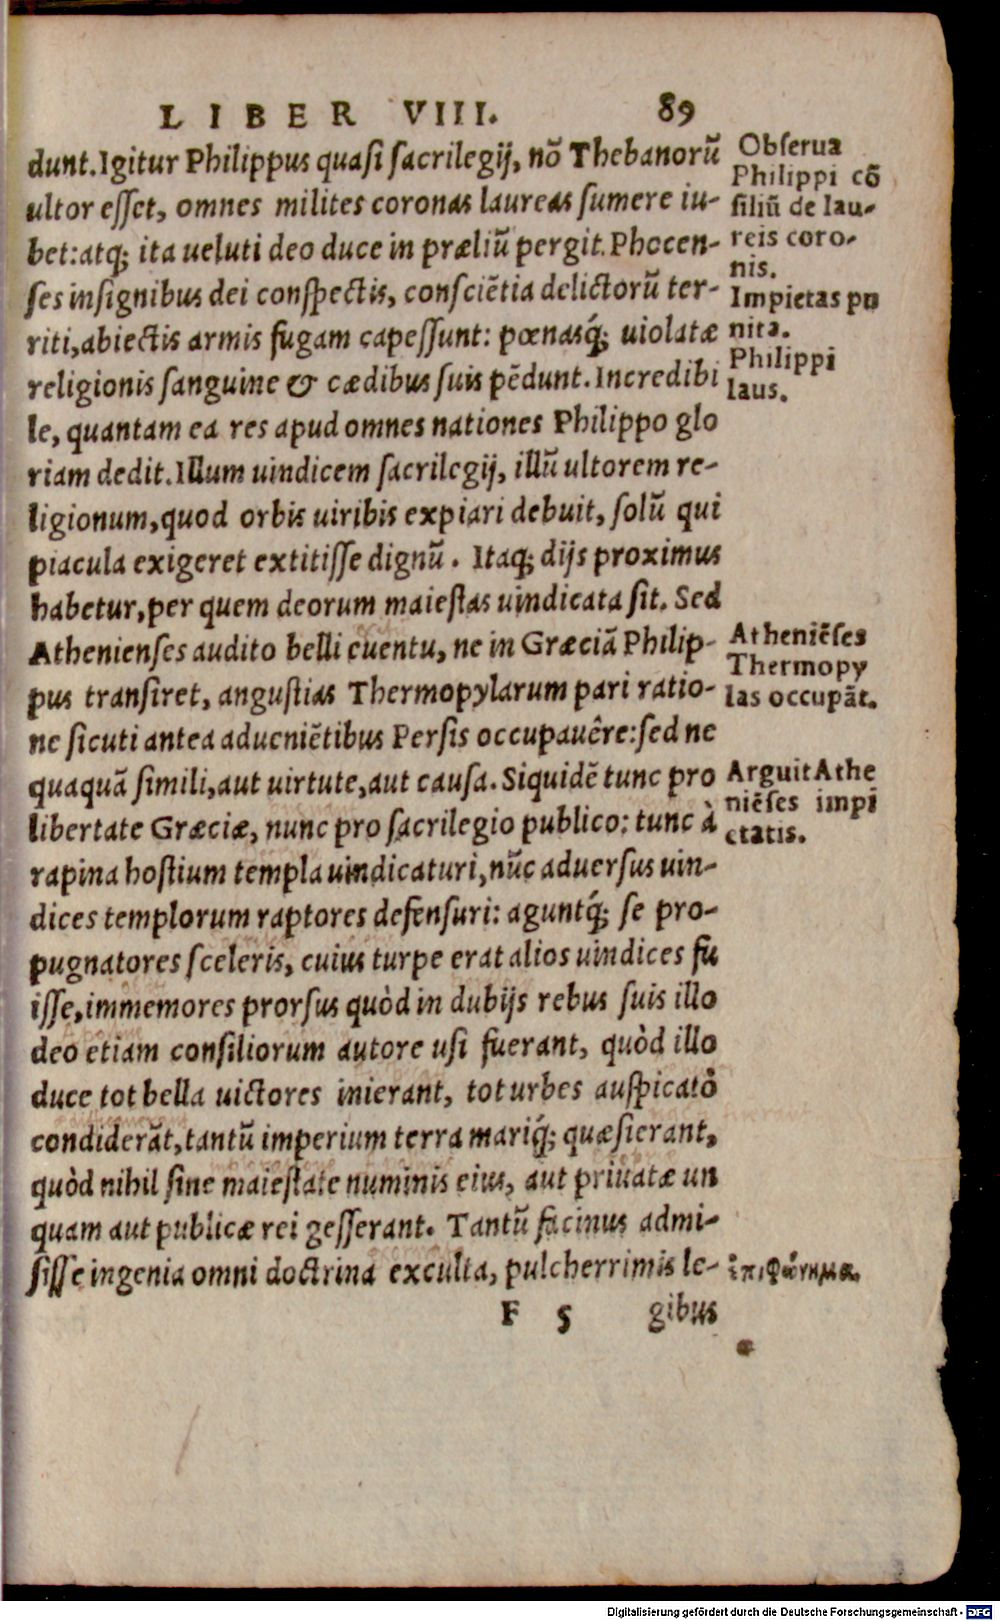 LIBER VIII. 89
dunt. Igitur Philippus quasi sacrilegij, nõ Thebanorũ
ultor esset, omnes milites coronas laureas sumere iu-
bet: atq; ita ueluti deo duce in præliũ pergit. Phocen-
ses insignibus dei conspectis, consciẽtia delictorũ ter-
riti, abiectis armis fugam capessunt: pœnasq́; uiolatæ
religionis sanguine & cædibus suis pẽdunt. Incredibi
le, quantam ea res apud omnes nationes Philippo glo
riam dedit. Illum uindicem sacrilegij, illũ ultorem re-
ligionum, quod orbis uiribis expiari debuit, solũ qui
piacula exigeret extitisse dignũ. Itaq; dijs proximus
habetur, per quem deorum maiestas uindicata sit. Sed
Athenienses audito belli euentu, ne in Græciã Philip-
pus transiret, angustias Thermopylarum pari ratio-
ne sicuti antea adueniẽtibus Persis occupauêre: sed ne
quaquã simili, aut uirtute, aut causa. Siquidẽ tunc pro
libertate Græciæ, nunc pro sacrilegio publico: tunc à
rapina hostium templa uindicaturi, nũc aduersus uin-
dices templorum raptores defensuri: aguntq́; se pro-
pugnatores sceleris, cuius turpe erat alios uindices fu
isse, immemores prorsus quòd in dubijs rebus suis illo
deo etiam consiliorum autore usi fuerant, quòd illo
duce tot bella uictores inierant, tot urbes auspicatò
condiderãt, tantũ imperium terra mariq́; quæsierant,
quòd nihil sine maiestate numinis eius, aut priuatæ un
quam aut publicæ rei gesserant. Tantũ facinus admi-
sisse ingenia omni doctrina exculta, pulcherrimis le-
F 5 gibus
Obserua
Philippi cõ
siliũ de lau-
reis coro-
nis.
Impietas pu
nita.
Philippi
laus.
Atheniẽses
Thermopy
las occupãt.
Arguit Athe
niẽses impi
etatis.
ἐπιφώνημα.
Digitalisierung gefördert durch die Deutsche Forschungsgemeinschaft - DFG